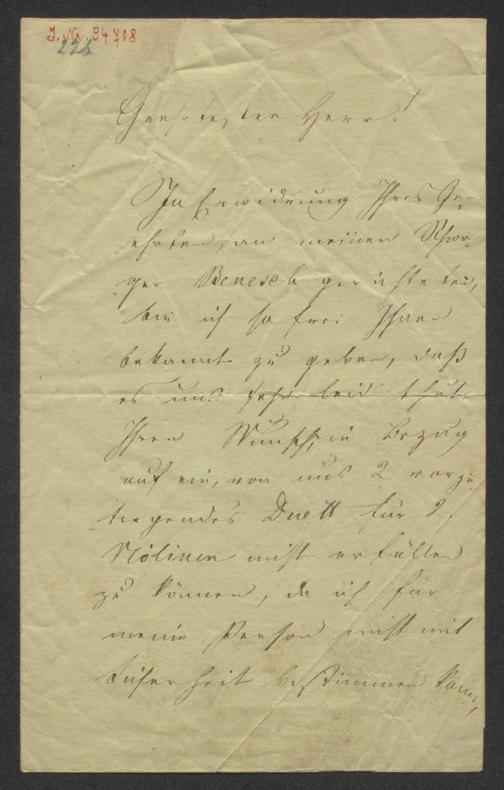 J. Nr. 94708
226
Geehrtester Herr!
In Erwiderung Ihres Ge-
ehrten, an meinen Schwa-
ger Benesch gerichteten,
bin ich so frei Ihnen
bekannt zu geben, daß
es uns sehr leid thut
Ihren Wunsch, in Bezug
auf ein, von uns 2 vorzu
tragendes Duett für 2
Violinen nicht erfüllen
zu können, da ich für
meine Person nicht mit
bestimmen kann,